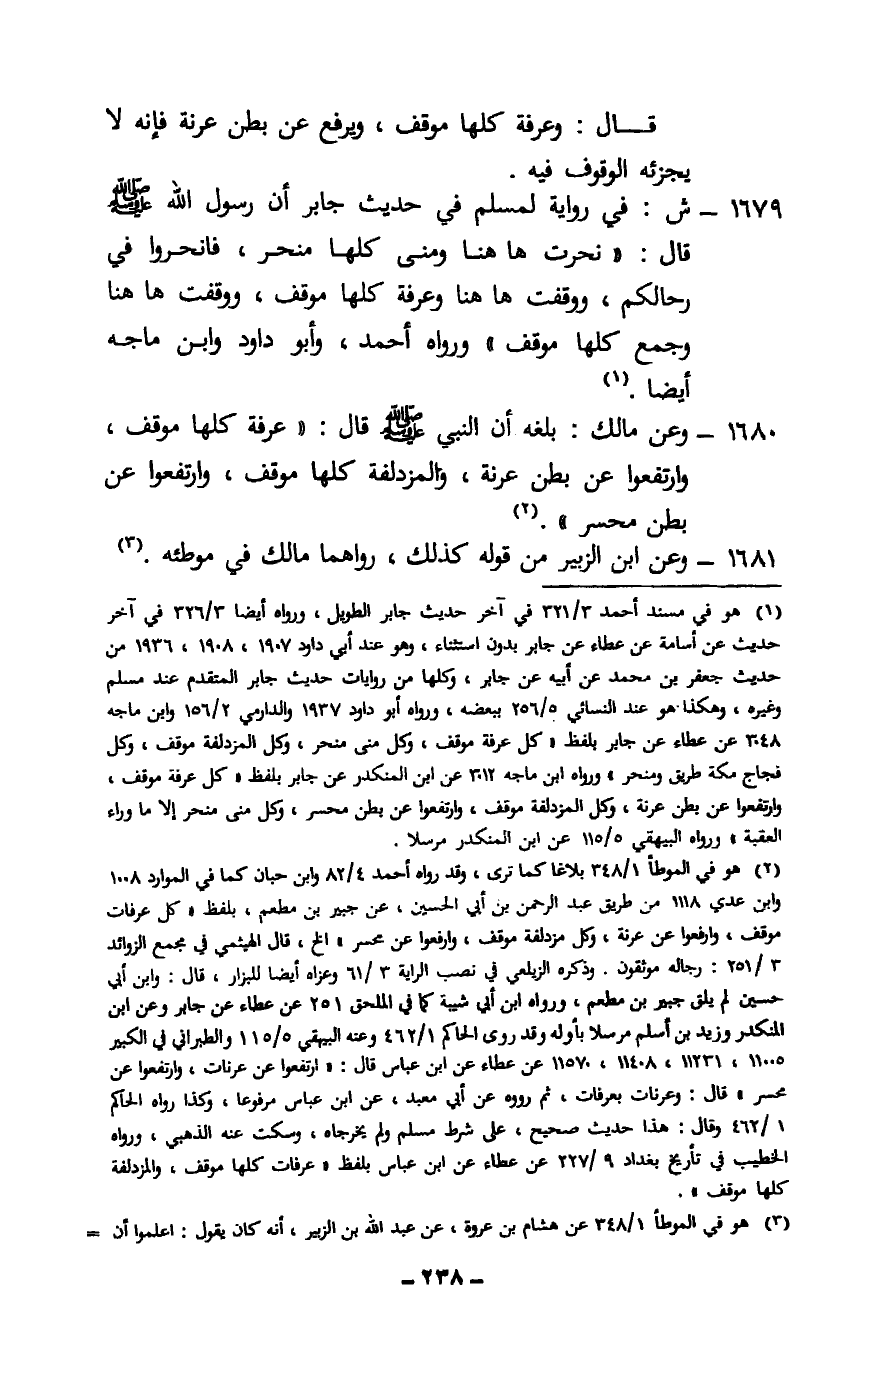 قـــال : وعرفة كلها موقف ، ويرفع عن بطن عرنة فإنه لا
يجزئه الوقوف فيه .
١٦٧٩ ــ ش : في رواية لمسلم في حديث جابر أن رسول الله ﷺ
قال : « نحرت ها هنـا ومنـى كلهـا منحـر ، فانحـروا في
رحالكم ، ووقفت ها هنا وعرفة كلها موقف ، ووقفت ها هنا
وجمع كلها موقف » ورواه أحمد ، وأبو داود وابـن ماجـه
أيضا .(١)
١٦٨٠ ــ وعن مالك : بلغه أن النبي ﷺ قال : « عرفة كلها موقف ،
وارتفعوا عن بطن عرنة ، والمزدلفة كلها موقف ، وارتفعوا عن
بطن محسر » .(٢)
١٦٨١ ــ وعن ابن الزبير من قوله كذلك ، رواهما مالك في موطئه .(٣)
(١) هو في مسند أحمد ٣٢١/٣ في آخر حديث جابر الطويل ، ورواه أيضا ٣٢٦/٣ في آخر
حديث عن أسامة عن عطاء عن جابر بدون استثناء ، وهو عند أبي داود ١٩٠٧ ، ١٩٠٨ ، ١٩٣٦ من
حديث جعفر بن محمد عن أبيه عن جابر ، وكلها من روايات حديث جابر المتقدم عند مسلم
وغيره ، وهكذا هو عند النسائي ٢٥٦/٥ ببعضه ، ورواه أبو داود ١٩٣٧ والدارمي ١٥٦/٢ وابن ماجه
٣٠٤٨ عن عطاء عن جابر بلفظ « كل عرفة موقف ، وكل منى منحر ، وكل المزدلفة موقف ، وكل
فجاج مكة طريق ومنحر » ورواه ابن ماجه ٣٠١٢ عن ابن المنكدر عن جابر بلفظ « كل عرفة موقف ،
وارتفعوا عن بطن عرنة ، وكل المزدلفة موقف ، وارتفعوا عن بطن محسر ، وكل منى منحر إلا ما وراء
العقبة » ورواه البيهقي ١١٥/٥ عن ابن المنكدر مرسلا .
(٢) هو في الموطأ ٣٤٨/١ بلاغا كما ترى ، وقد رواه أحمد ٨٢/٤ وابن حبان كما في الموارد ١٠٠٨
وابن عدي ١١١٨ من طريق عبد الرحمن بن أبي الحسين ، عن جبير بن مطعم ، بلفظ « كل عرفات
موقف ، وارفعوا عن عرنة ، وكل مزدلفة موقف ، وارفعوا عن محسر » الخ ، قال الهيثمي في مجمع الزوائد
٣ /٢٥١ : رجاله موثقون . وذكره الزيلعي في نصب الراية ٣ /٦١ وعزاه أيضا للبزار ، قال : وابن أبي
حسين لم يلق جبير بن مطعم ، ورواه ابن أبي شيبة كما في الملحق ٢٥١ عن عطاء عن جابر وعن ابن
المنكدر وزيد بن أسلم مرسلا بأوله وقد روى الحاكم ٤٦٢/١ وعنه البيهقي ١١٥/٥ والطبراني في الكبير
١١٠٠٥ ، ١١٢٣١ ، ١١٤٠٨ ، ١١٥٧٠ عن عطاء عن ابن عباس قال : « ارتفعوا عن عرنات ، وارتفعوا عن
محسر » قال : وعرنات بعرفات ، ثم رووه عن أبي معبد ، عن ابن عباس مرفوعا ، وكذا رواه الحاكم
١ /٤٦٢ وقال : هذا حديث صحيح ، على شرط مسلم ولم يخرجاه ، وسكت عنه الذهبي ، ورواه
الخطيب في تأريخ بغداد ٩ /٢٢٧ عن عطاء عن ابن عباس بلفظ « عرفات كلها موقف ، والمزدلفة
كلها موقف » .
(٣) هو في الموطأ ٣٤٨/١ عن هشام بن عروة ، عن عبد الله بن الزبير ، أنه كان يقول : اعلموا أن =
ــ ٢٣٨ ــ